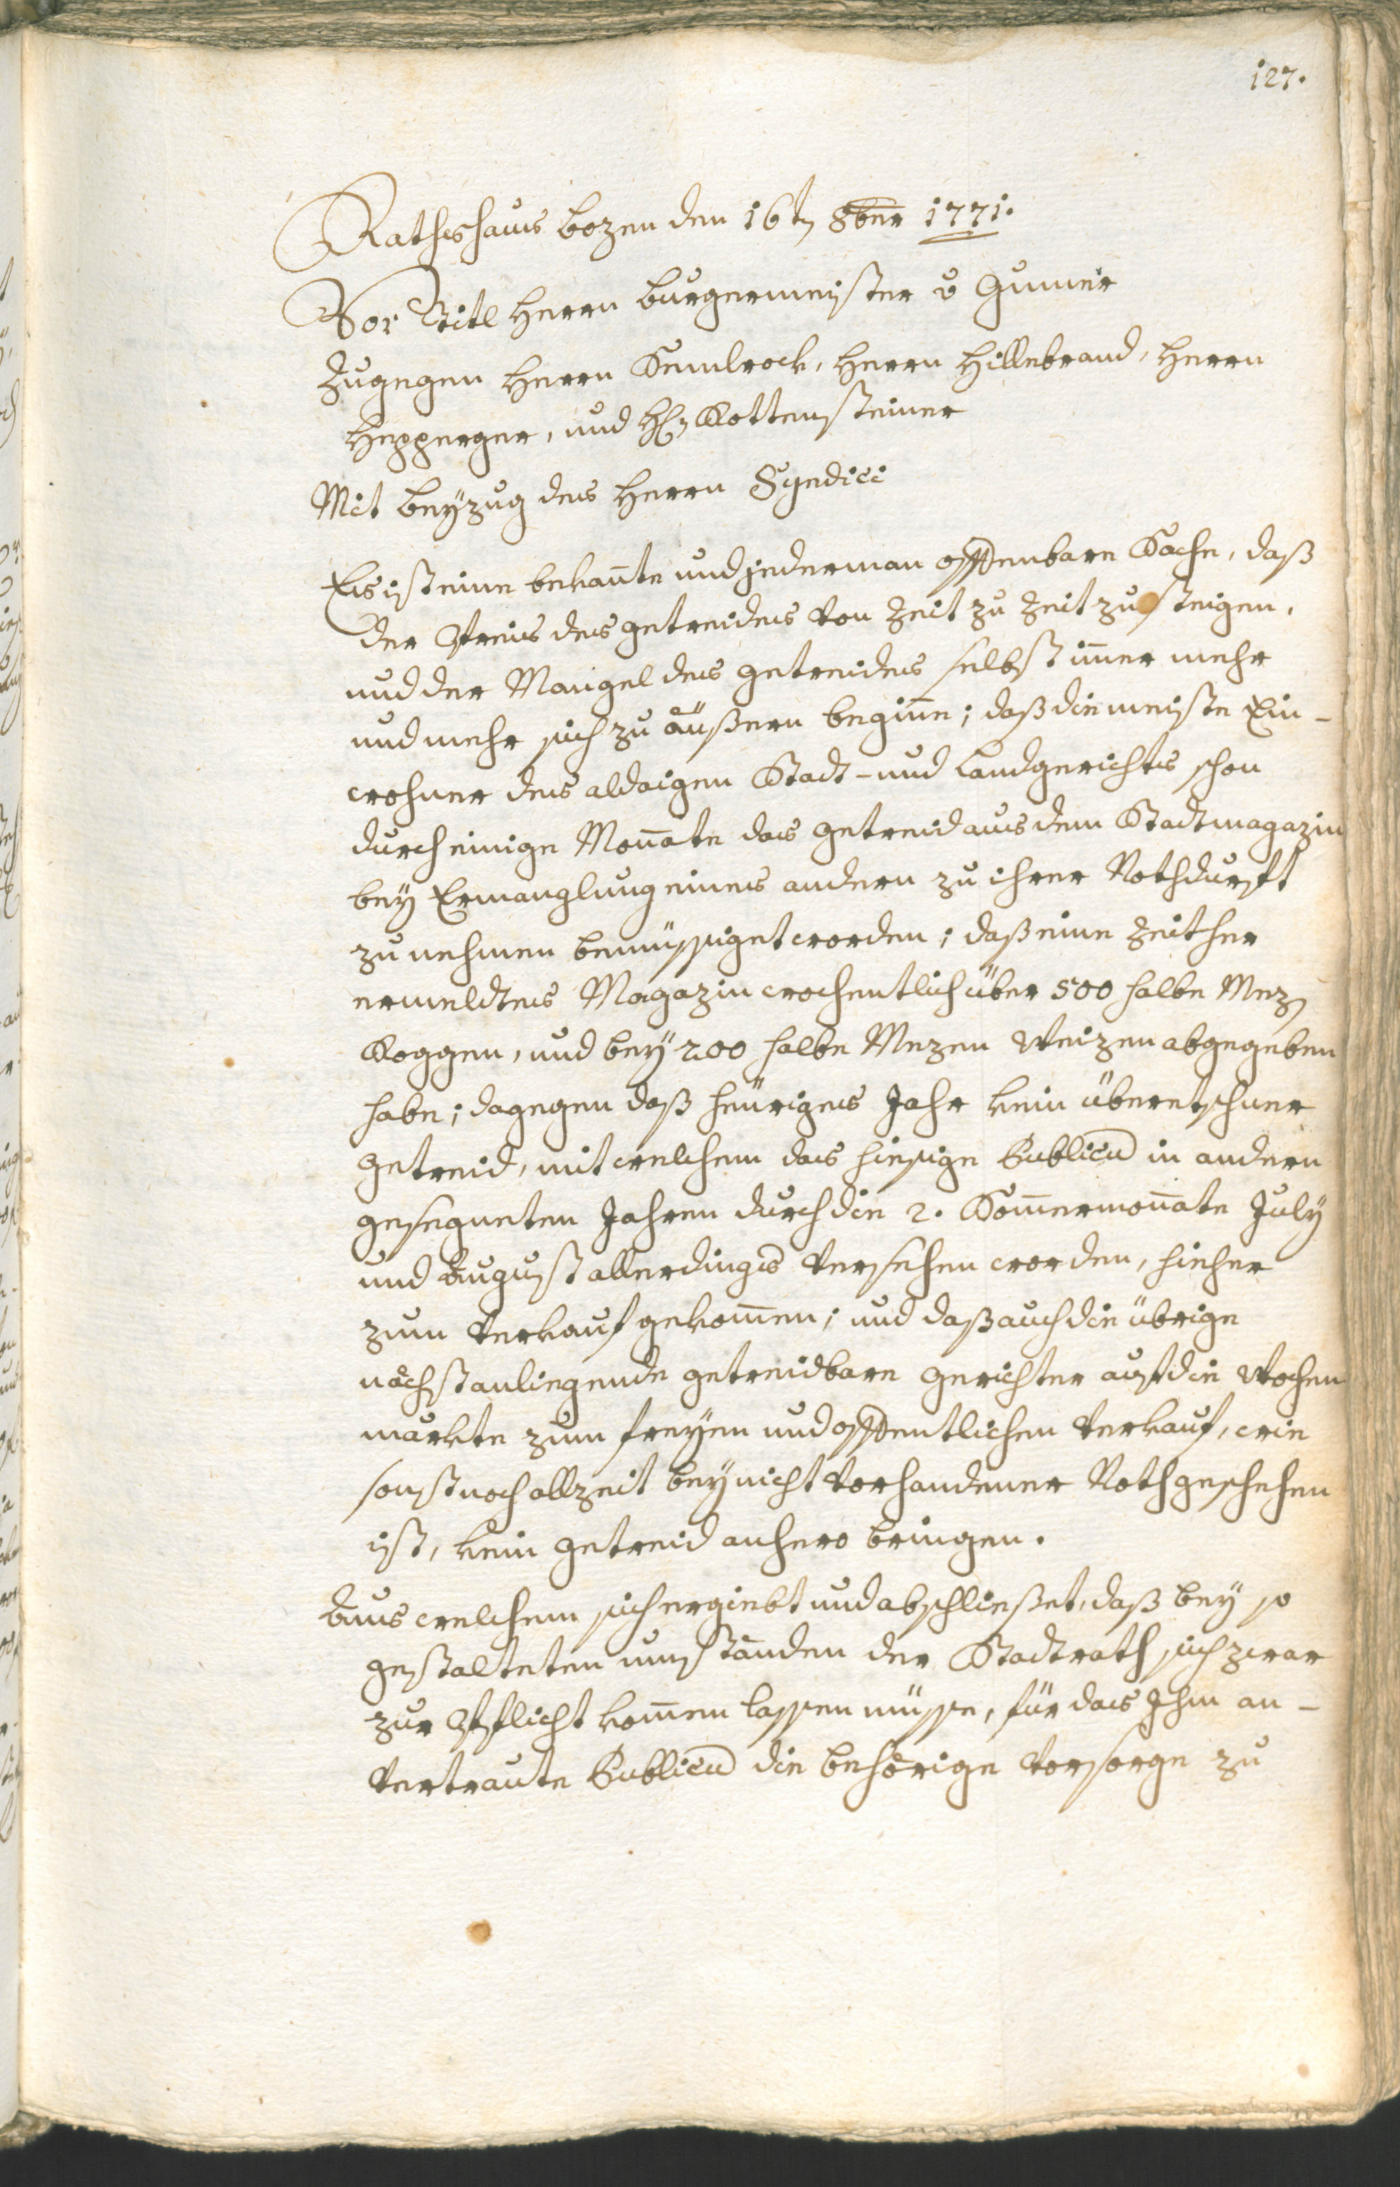 127.
Rathshaus Bozen den 16tn 8ber 1771.
Vor Titl Herrn Burgermeister v Gumer
Zugegen Herrn Kemlrock, Herrn Hillebrand, Herrn
Hepperger, und Hl Kottensteiner
Mit Beyzug des Herrn Syndici
Es ist eine bekañte und jederman offenbare Sache, daß
der Preis des getreides von Zeit zu Zeit zu steigen,
und der Mangel des getreides selbst im̄er mehr
und mehr sich zu äußern begiñe; daß die meiste Ein-
wohner des aldaigen Stadt- und Landgerichts schon
durch einige Moñate das getreid aus dem Stadtmagazin
bey Ermanglung eines andern zu ihrer Nothdurfft
zu nehmen bemüssiget worden; daß eine Zeit her
ermeldtes Magazin wochentlich über 500 halbe Mez
Roggen, und bey 200 halbe Mezen Weizen abgegeben
habe; dagegen daß heüriges Jahr kein überetschner
getreid, mit welchem das hiesige Publicũ in andern
gesegneten Jahren durch die 2. Som̄ermoñate July
und August allerdings versehen worden, hieher
zum Verkauf gekom̄en; und daß auch die übrige
nächstanliegende getreidbare Gerichter auf die Wochen
märkte zum freyen und offentlichen Verkauf, wie
sonst noch allzeit bey nicht vorhandener Noth geschehen
ist, kein getreid anhero bringen.
Aus welchem sich ergiebt und abschließet, daß bey so
gestalteten umständen der Stadtrath sich zwar
zur Pflicht kom̄en lassen müsse, für das Ihm an-
vertraute Publicũ die behörige Vorsorge zu